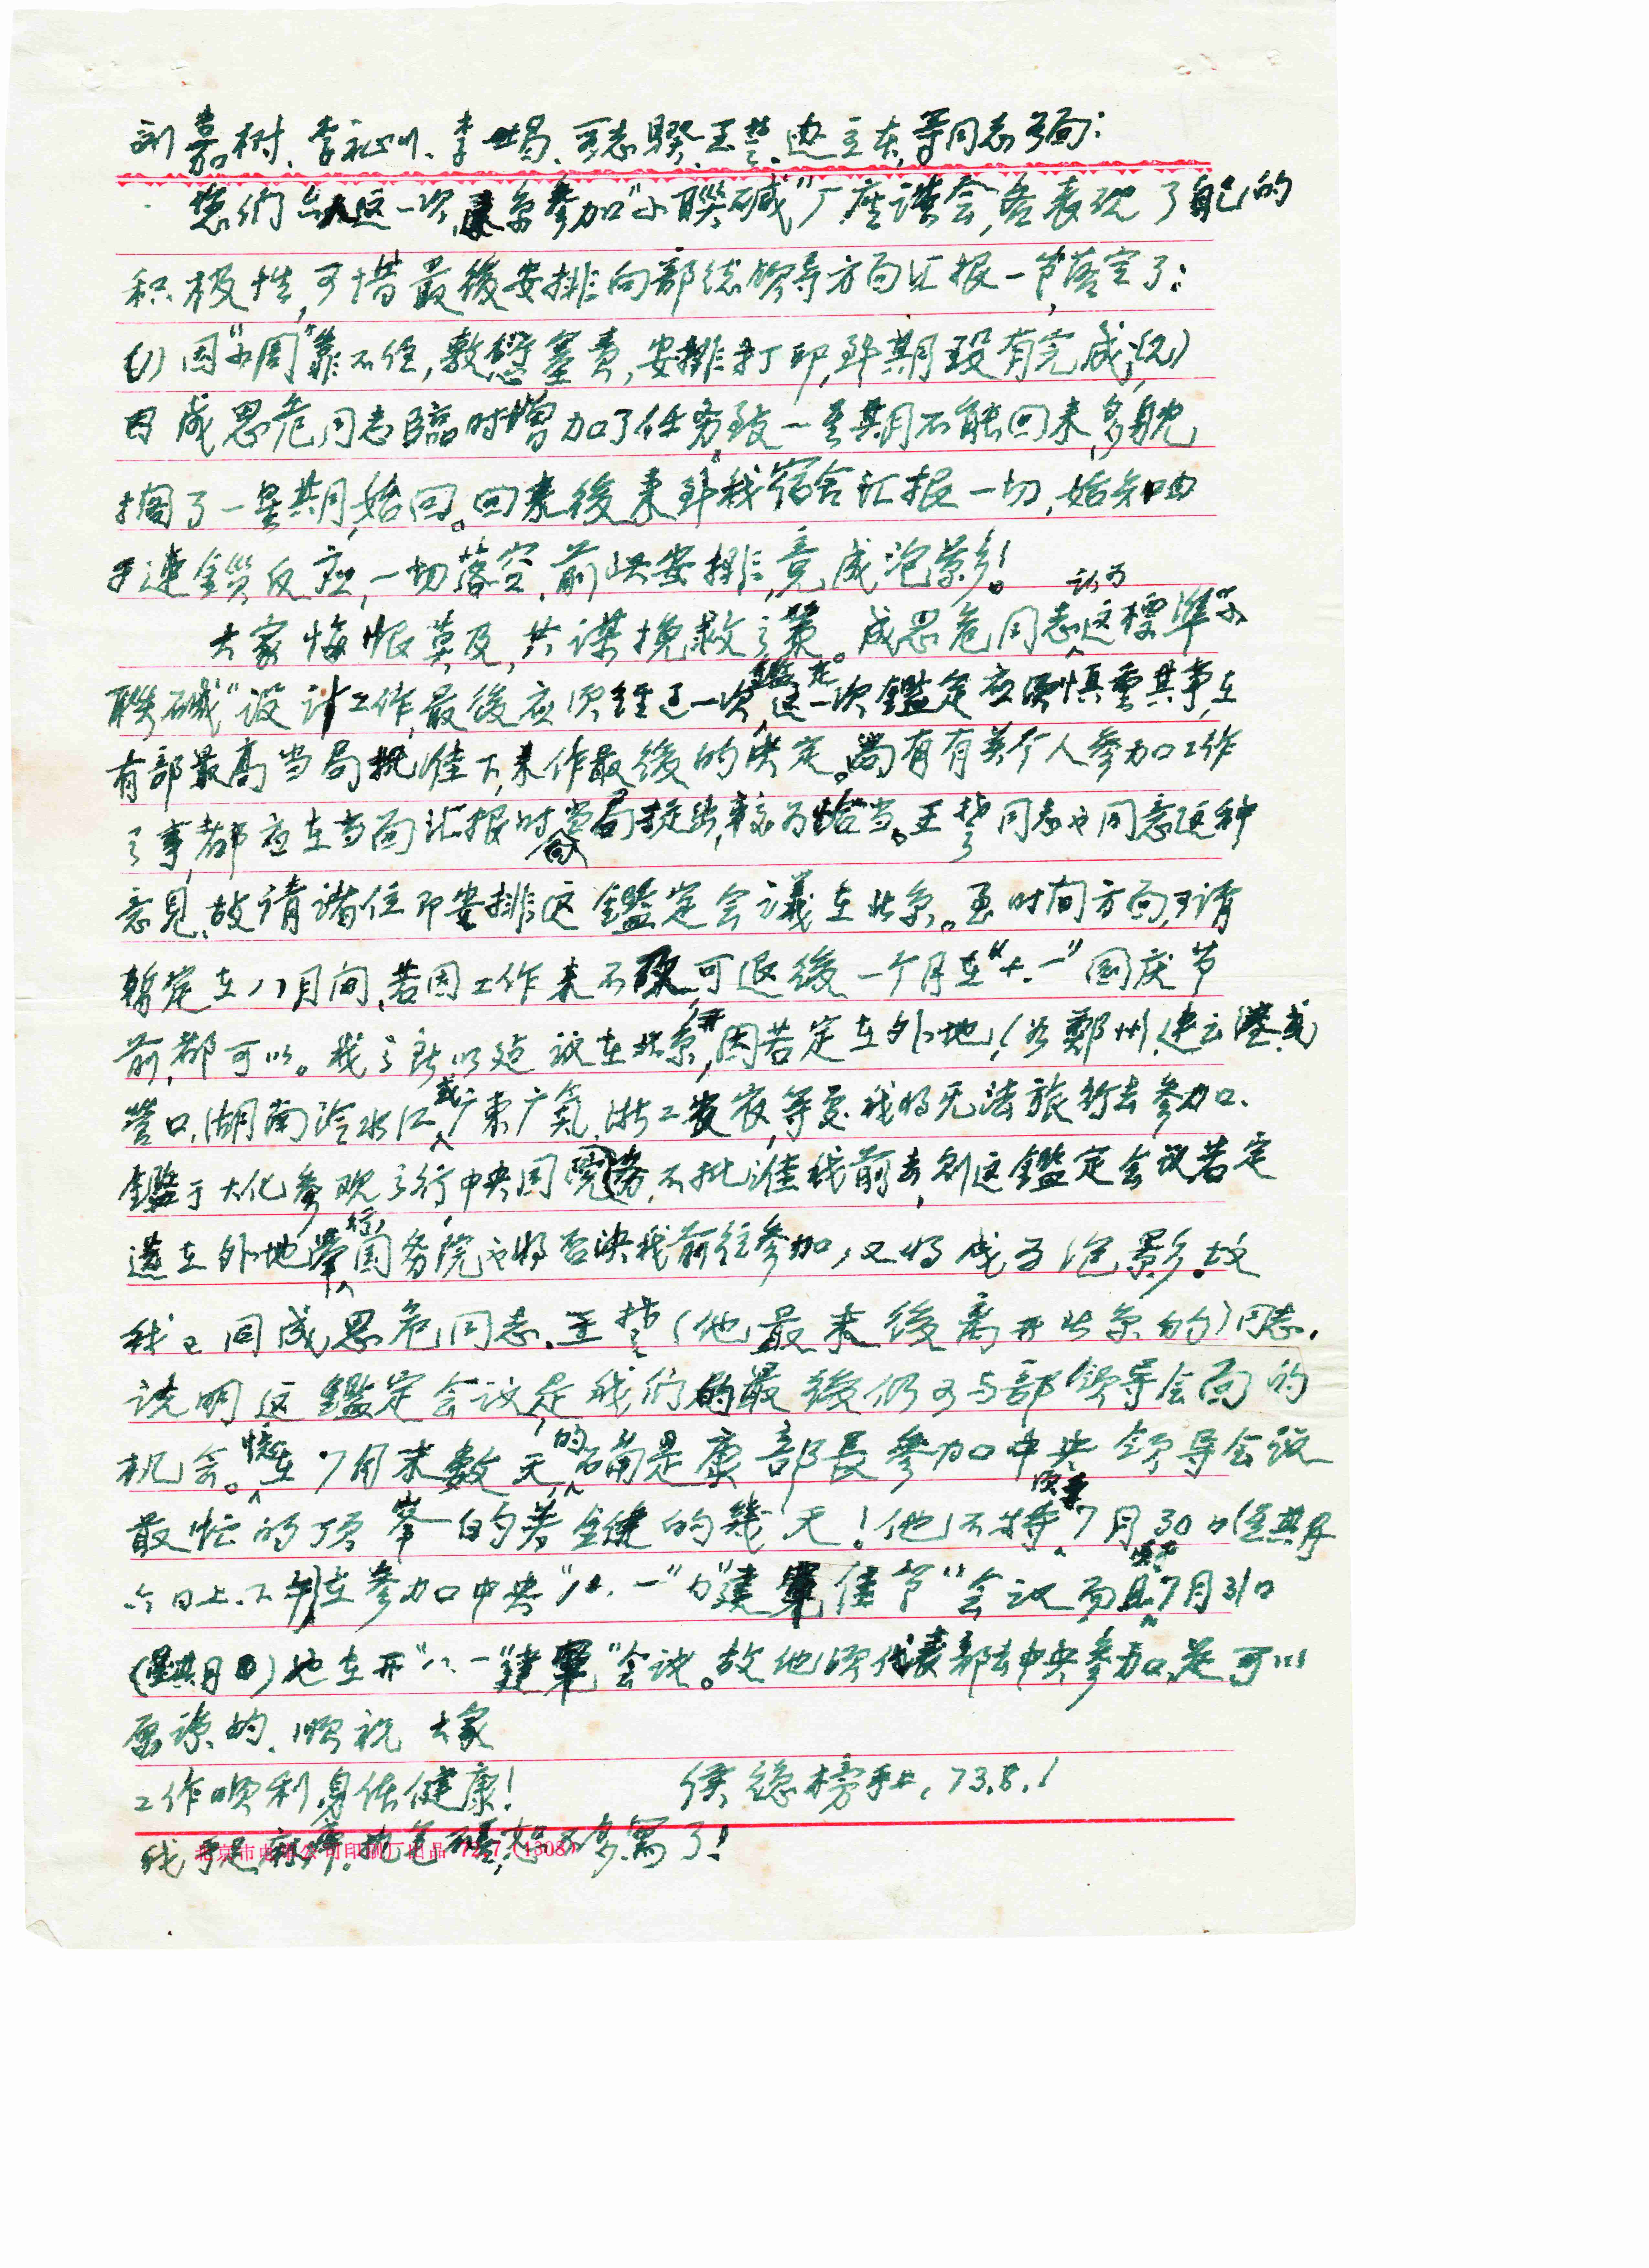 刘嘉树、李祉川、李世昌、李志騤、王楚、边立东、等同志鉴:
您们这一次来京参加“小联碱”厂座谈会,各表现了自己的
积极性,可惜最後安排向部总领导方面汇报一节,落空了:
(1) 因“小周”靠不住,敷衍塞责,安排打印,到期没有完成;(2)
因成思危同志臨时增加了任务,致一星期不能回来,多躭
搁了一星期,始回。回来後来到我宿舍汇报一切,始知由
于連鎖反应,一切落空,前此安排,竟成泡影!
大家悔恨莫及,共谋挽救之策。成思危同志认为这標準“小
联碱”设计工作,最後应须经过一次鑑定,这一次鑑定应须慎重其事,在
有部最高当局批准下,来作最後的决定。尚有有关个人参加工作
之事,都应在当面汇报时向当局提出,較为恰当。王楚同志也同意这种
意见,故请诸位即安排这鑑定会議在北京。至时间方面,可请
暂定在八月间,若因工作来不及,可退後一个月在“十.一”国庆节
前,都可以。我之所以建议在北京开,因若定在外地,(如鄭州,連云港,或
营口,湖南冷水江,或广东广氮,浙江衢)等處,我将无法旅行去参加.
鑑于大化参观之行中央国务院不批准我前去,则这鑑定会议若定
在外地举行,国务院也将否决我前往参加,又将成为泡影。故
我已同成思危同志、王楚(他最末後离开北京的)同志,
说明这鑑定会议,是我们的最後仍可与部领导会面的
机会。在7月末数天,的确是康部長参加中央領导会议
最忙的顶峯的关鍵的幾天!他不特7月30日(星期
)上.下午在参加中央“八.一”“建軍佳节”会议而且7月31日
(星期日)也在开“八.一”建軍“会议。故他须代表部去中央参加,是可以
原谅的.順祝 大家
工作順利,身体健康!  侯德榜手上,73.8.1
我手足麻痺,执笔,恕不多寫了!
北京市电车公司印刷厂出品